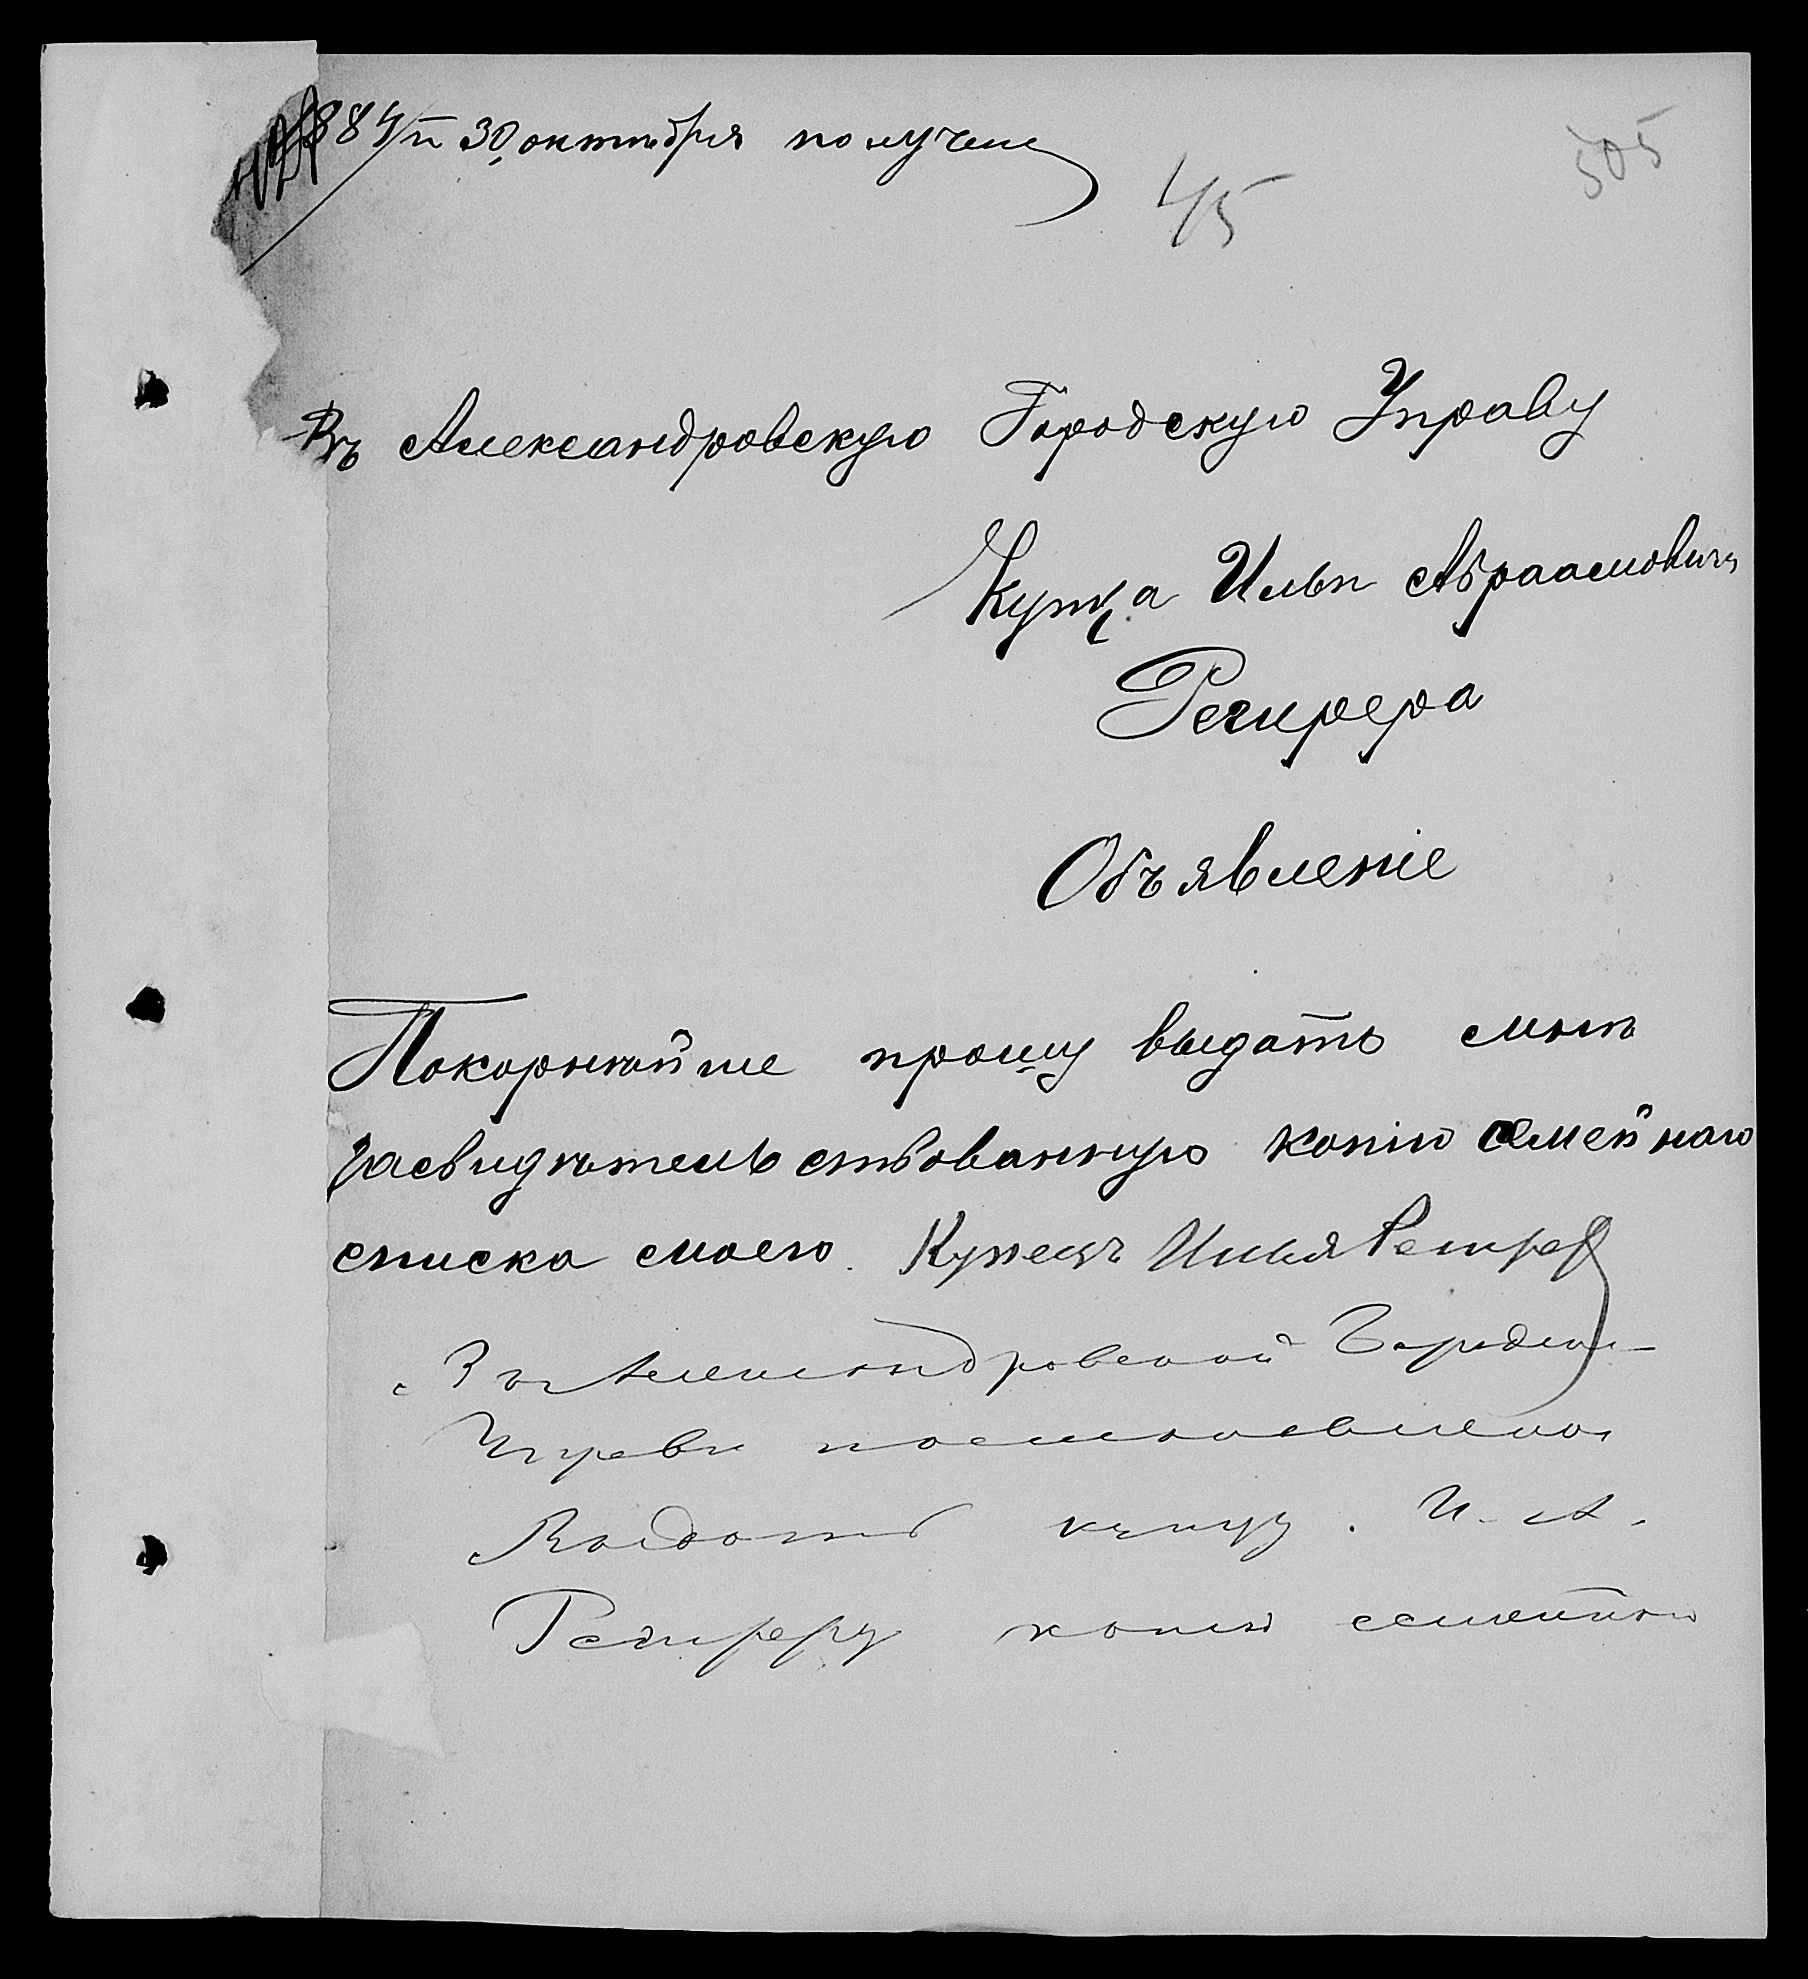 1884/п 30 октября получено
45
505
Въ Александровскую Городскую Управу
Купца Ильи Абраамовича
Регирера
Объявленіе
Покорнѣйше прошу выдать мнѣ
засвидѣтельствованную копію семейнаго
списка моего. Купецъ Илья Регирер
Въ Александровской Городской
Управѣ постановлено
Выдать купцу. И. А.
Региреру копію семейнаго